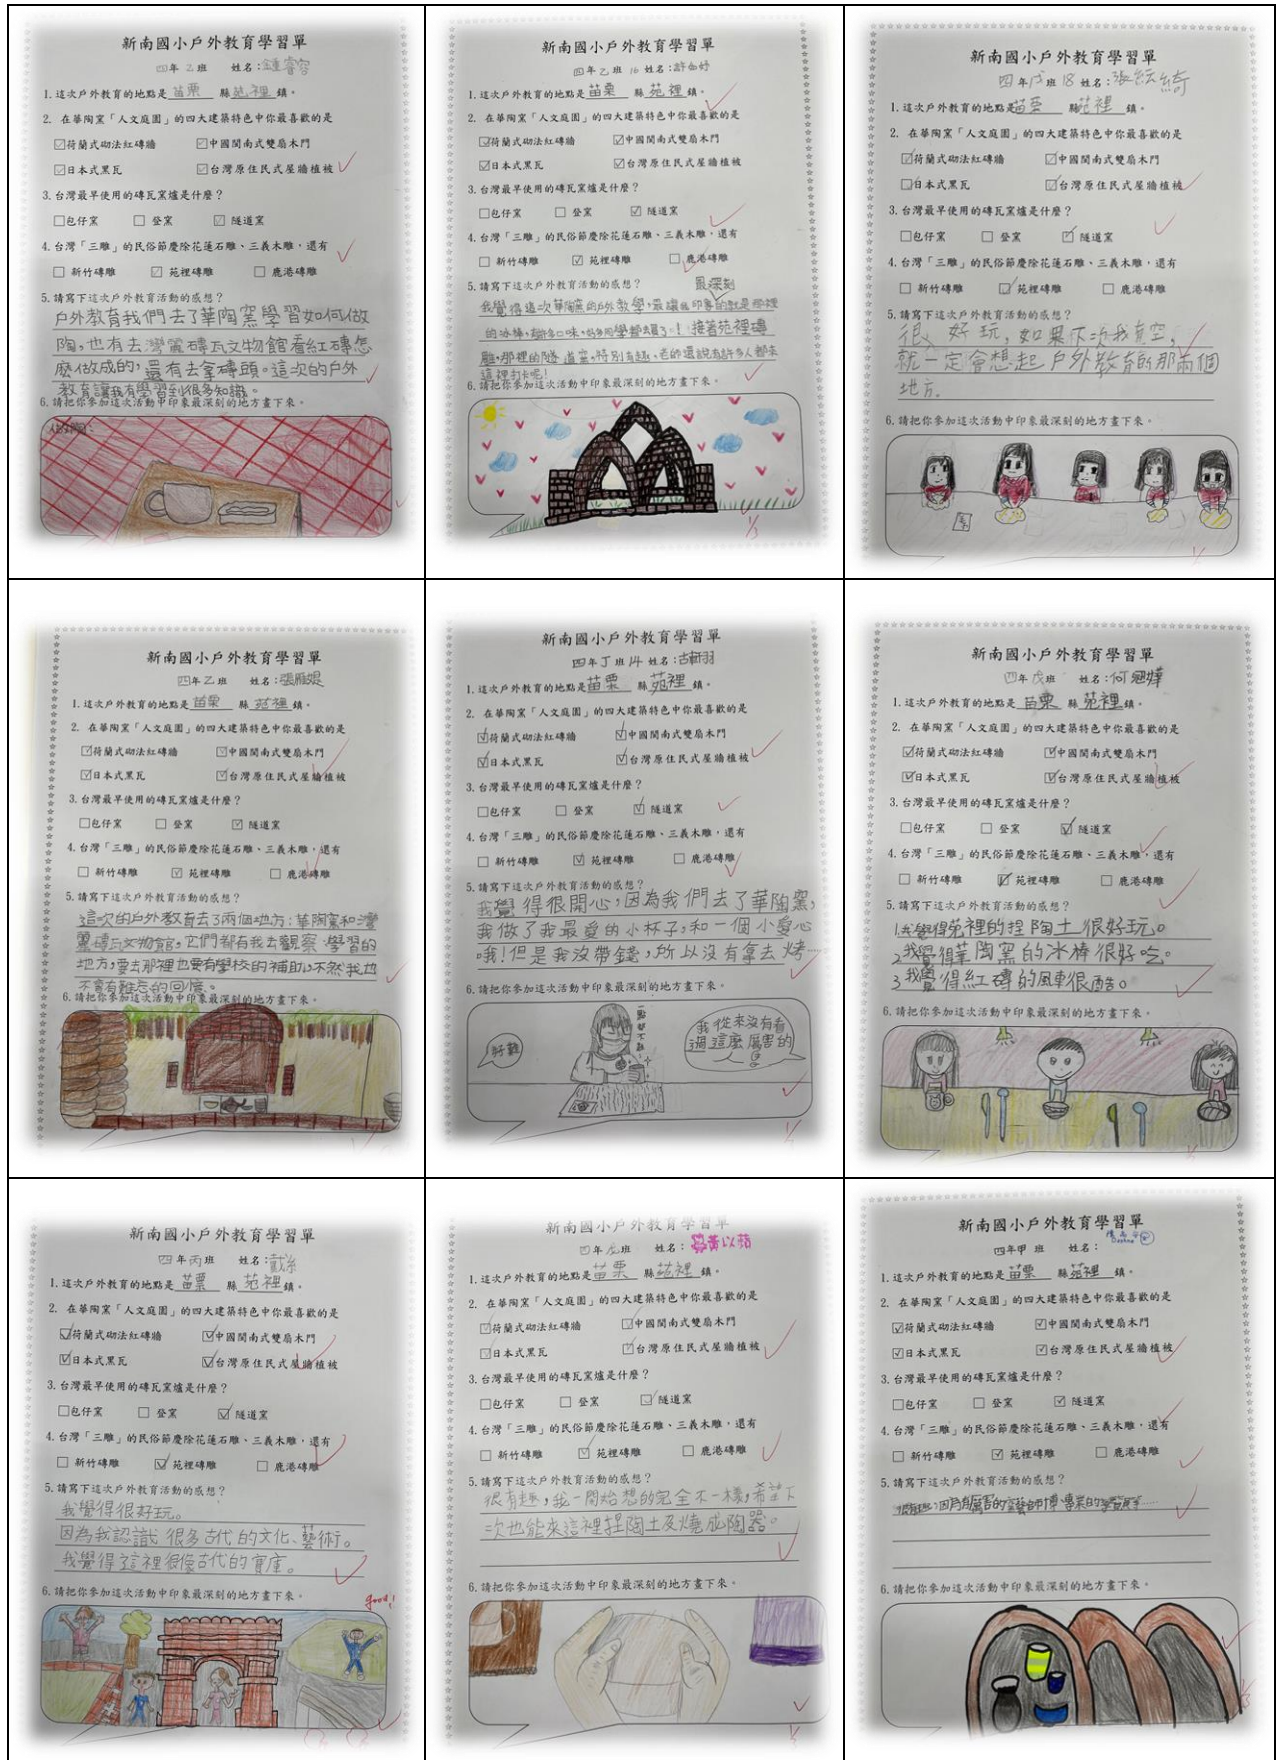 新南國小戶外教育學習單
四年乙班 姓名：鍾睿容
1.這次戶外教育的地點是 苗栗 縣 苑裡 鎮。
2. 在華陶窯「人文庭園」的四大建築特色中你最喜歡的是
☑荷蘭式砌法紅磚牆 ☑中國閩南式雙扇木門
☑日本式黑瓦 ☑台灣原住民式屋牆植被
3.台灣最早使用的磚瓦窯爐是什麼？
□包仔窯 □登窯 ☑隧道窯
4.台灣「三雕」的民俗節慶除花蓮石雕、三義木雕，還有
□新竹磚雕 ☑苑裡磚雕 □鹿港磚雕
5.請寫下這次戶外教育活動的感想？
戶外教育我們去了華陶窯學習如何做
陶，也有去灣麗磚瓦文物館看紅磚怎
麼做成的，還有去拿磚頭。這次的戶外
教育讓我有學習到很多知識。
6.請把你參加這次活動中印象最深刻的地方畫下來。
新南國小戶外教育學習單
四年乙班 16 姓名：許
1.這次戶外教育的地點是 苗栗 縣 苑裡 鎮。
2. 在華陶窯「人文庭園」的四大建築特色中你最喜歡的是
☑荷蘭式砌法紅磚牆 ☑中國閩南式雙扇木門
☑日本式黑瓦 ☑台灣原住民式屋牆植被
3.台灣最早使用的磚瓦窯爐是什麼？
□包仔窯 □登窯 ☑隧道窯
4.台灣「三雕」的民俗節慶除花蓮石雕、三義木雕，還有
□新竹磚雕 ☑苑裡磚雕 □鹿港磚雕
5.請寫下這次戶外教育活動的感想？ 最深刻
我覺得這次華陶窯的戶外教學，最讓我印象的就是那裡
的冰棒，有許多口味，好多同學都去買了！接著苑裡磚
雕，那裡的隧道窯，特別有趣，老師還說有許多人都來
這裡打卡呢！
6.請把你參加這次活動中印象最深刻的地方畫下來。
新南國小戶外教育學習單
四年戊班18 姓名：張綺
1.這次戶外教育的地點是 苗栗 縣 苑裡 鎮。
2. 在華陶窯「人文庭園」的四大建築特色中你最喜歡的是
☑荷蘭式砌法紅磚牆 ☑中國閩南式雙扇木門
☑日本式黑瓦 ☑台灣原住民式屋牆植被
3.台灣最早使用的磚瓦窯爐是什麼？
□包仔窯 □登窯 ☑隧道窯
4.台灣「三雕」的民俗節慶除花蓮石雕、三義木雕，還有
□新竹磚雕 ☑苑裡磚雕 □鹿港磚雕
5.請寫下這次戶外教育活動的感想？
很、好玩，如果下次我有空，
就一定會想起戶外教育的那兩個
地方。
6.請把你參加這次活動中印象最深刻的地方畫下來。
新南國小戶外教育學習單
四年乙班 姓名：張雁媞
1.這次戶外教育的地點是 苗栗 縣 苑裡 鎮。
2. 在華陶窯「人文庭園」的四大建築特色中你最喜歡的是
☑荷蘭式砌法紅磚牆 ☑中國閩南式雙扇木門
☑日本式黑瓦 ☑台灣原住民式屋牆植被
3.台灣最早使用的磚瓦窯爐是什麼？
□包仔窯 □登窯 ☑隧道窯
4.台灣「三雕」的民俗節慶除花蓮石雕、三義木雕，還有
□新竹磚雕 ☑苑裡磚雕 □鹿港磚雕
5.請寫下這次戶外教育活動的感想？
這次的戶外教育去了兩個地方：華陶窯和灣
麗磚瓦文物館，它們都有我去觀察、學習的
地方，要去那裡也要有學校的補助，不然我也
不會有難忘的回憶。
6.請把你參加這次活動中印象最深刻的地方畫下來。
新南國小戶外教育學習單
四年丁班14 姓名：古
1.這次戶外教育的地點是 苗栗 縣 苑裡 鎮。
2. 在華陶窯「人文庭園」的四大建築特色中你最喜歡的是
☑荷蘭式砌法紅磚牆 ☑中國閩南式雙扇木門
☑日本式黑瓦 ☑台灣原住民式屋牆植被
3.台灣最早使用的磚瓦窯爐是什麼？
□包仔窯 □登窯 ☑隧道窯
4.台灣「三雕」的民俗節慶除花蓮石雕、三義木雕，還有
□新竹磚雕 ☑苑裡磚雕 □鹿港磚雕
5.請寫下這次戶外教育活動的感想？
我覺得很開心，因為我們去了華陶窯，
我做了我最愛的小杯子，和一個小愛心
哦！但是我沒帶錢，所以沒有拿去烤……
6.請把你參加這次活動中印象最深刻的地方畫下來。
好難
一點都不難
我從來沒有看
過這麼厲害的
人
新南國小戶外教育學習單
四年戊班 姓名：何
1.這次戶外教育的地點是 苗栗 縣 苑裡 鎮。
2. 在華陶窯「人文庭園」的四大建築特色中你最喜歡的是
☑荷蘭式砌法紅磚牆 ☑中國閩南式雙扇木門
☑日本式黑瓦 ☑台灣原住民式屋牆植被
3.台灣最早使用的磚瓦窯爐是什麼？
□包仔窯 □登窯 ☑隧道窯
4.台灣「三雕」的民俗節慶除花蓮石雕、三義木雕，還有
□新竹磚雕 ☑苑裡磚雕 □鹿港磚雕
5.請寫下這次戶外教育活動的感想？
1.我覺得苑裡的捏陶土很好玩。
2.我覺得華陶窯的冰棒很好吃。
3.我覺得紅磚的風車很酷。
6.請把你參加這次活動中印象最深刻的地方畫下來。
新南國小戶外教育學習單
四年丙班 姓名：戴
1.這次戶外教育的地點是 苗栗 縣 苑裡 鎮。
2. 在華陶窯「人文庭園」的四大建築特色中你最喜歡的是
☑荷蘭式砌法紅磚牆 ☑中國閩南式雙扇木門
☑日本式黑瓦 ☑台灣原住民式屋牆植被
3.台灣最早使用的磚瓦窯爐是什麼？
□包仔窯 □登窯 ☑隧道窯
4.台灣「三雕」的民俗節慶除花蓮石雕、三義木雕，還有
□新竹磚雕 ☑苑裡磚雕 □鹿港磚雕
5.請寫下這次戶外教育活動的感想？
我覺得很好玩。
因為我認識很多古代的文化、藝術。
我覺得了這裡很像古代的寶庫。
6.請把你參加這次活動中印象最深刻的地方畫下來。
good!
新南國小戶外教育學習單
四年戊班 姓名：黃以蓓
1.這次戶外教育的地點是 苗栗 縣 苑裡 鎮。
2. 在華陶窯「人文庭園」的四大建築特色中你最喜歡的是
☑荷蘭式砌法紅磚牆 ☑中國閩南式雙扇木門
☑日本式黑瓦 ☑台灣原住民式屋牆植被
3.台灣最早使用的磚瓦窯爐是什麼？
□包仔窯 □登窯 ☑隧道窯
4.台灣「三雕」的民俗節慶除花蓮石雕、三義木雕，還有
□新竹磚雕 ☑苑裡磚雕 □鹿港磚雕
5.請寫下這次戶外教育活動的感想？
很有趣，我一開始想的完全不一樣，希望下
次也能來這裡捏陶土及燒成陶器。
6.請把你參加這次活動中印象最深刻的地方畫下來。
新南國小戶外教育學習單
四年甲班 姓名：
1.這次戶外教育的地點是 苗栗 縣 苑裡 鎮。
2. 在華陶窯「人文庭園」的四大建築特色中你最喜歡的是
☑荷蘭式砌法紅磚牆 ☑中國閩南式雙扇木門
☑日本式黑瓦 ☑台灣原住民式屋牆植被
3.台灣最早使用的磚瓦窯爐是什麼？
□包仔窯 □登窯 ☑隧道窯
4.台灣「三雕」的民俗節慶除花蓮石雕、三義木雕，還有
□新竹磚雕 ☑苑裡磚雕 □鹿港磚雕
5.請寫下這次戶外教育活動的感想？
6.請把你參加這次活動中印象最深刻的地方畫下來。